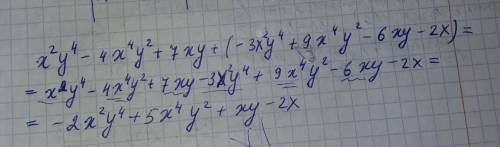 x²y⁴ - 4x⁴y² + 7xy + (-3x²y⁴ + 9x⁴y² - 6xy - 2x) =
= x²y⁴ - 4x⁴y² + 7xy - 3x²y⁴ + 9x⁴y² - 6xy - 2x =
= -2x²y⁴ + 5x⁴y² + xy - 2x